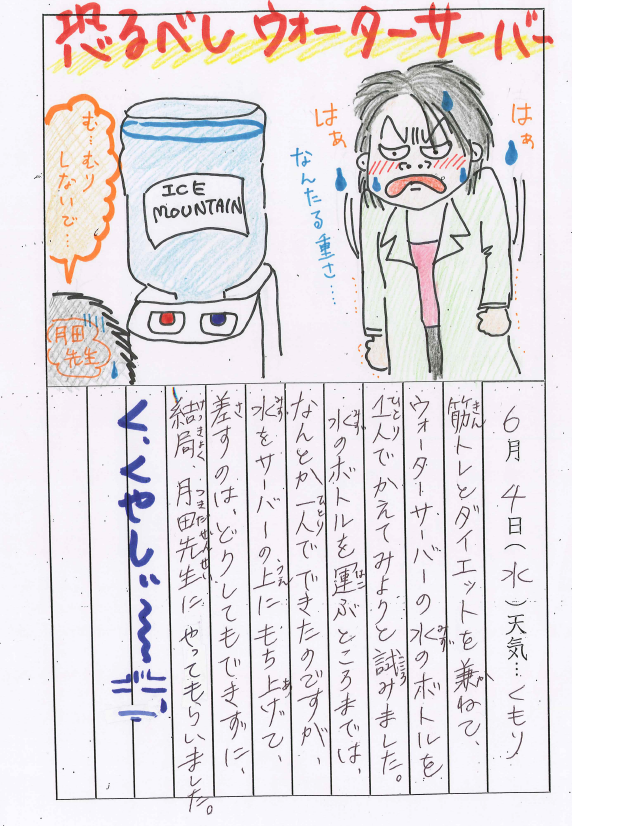 恐るべし ウォーターサーバー
はぁ
はぁ
なんたる重さ…
ICE
MOUNTAIN
む…むり
しないで…
月田
先生
6月 4日(水)天気…くもり
筋トレとダイエットを兼ねて、
ウォーターサーバーの水のボトルを
1人でかえてみようと試みました。
水のボトルを運ぶところまでは、
なんとか一人でできたのですが、
水をサーバーの上にもち上げて、
差すのは、どうしてもできずに、
結局、月田先生にやってもらいました。
く、くやしい〜〜!!